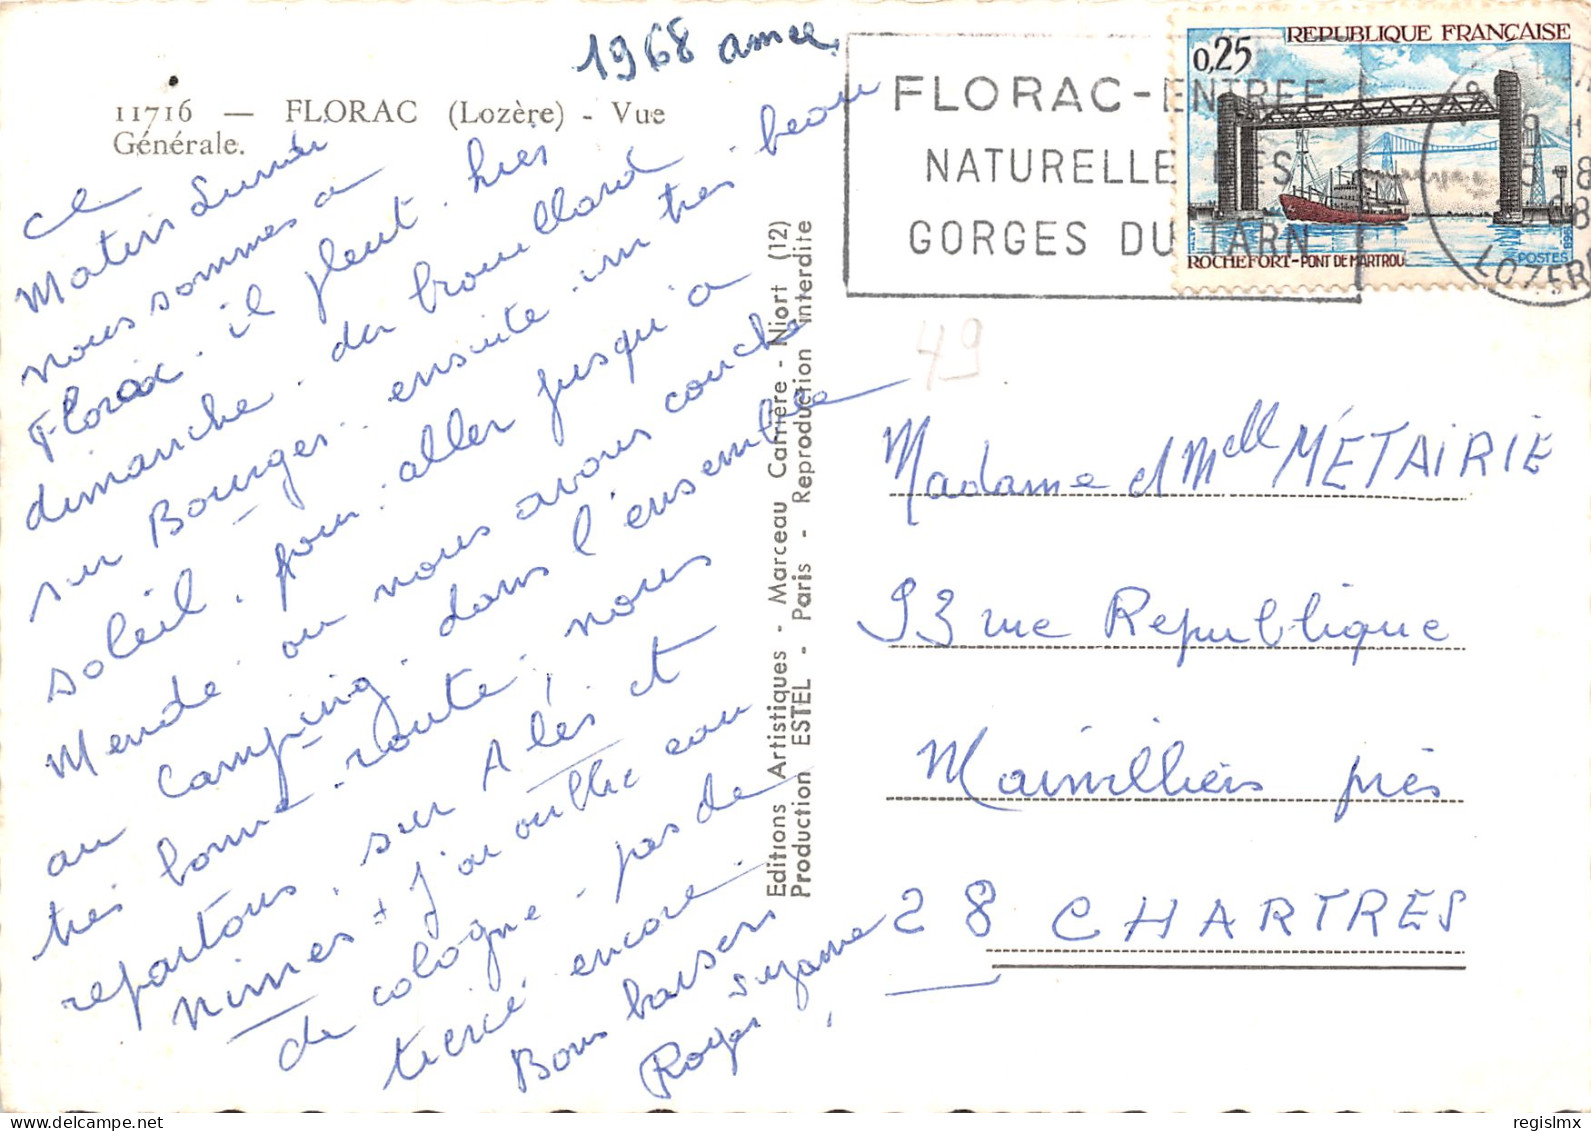 1968 année
11716 — FLORAC (Lozère) - Vue
Générale.
ce
Matin Lundi
nous sommes a
Florac. il pleut. hier
dimanche. du brouillard
sur Bourges. ensuite un tres beau
soleil. pour aller jusqu'a
Mende ou nous avons couche
au camping. dans l'ensemble
très bonne route, nous
repartons sur Alès et
Nimes + J'ai oublie eau
de cologne - pas de
tiercé encore.
Bons baisers
Roger Suzanne
Editions Artistiques - Marceau Carrière - Niort (12)
Production ESTEL - Paris - Reproduction interdite
FLORAC-ENTREE
NATURELLE DES
GORGES DU TARN
REPUBLIQUE FRANÇAISE
0,25
ROCHEFORT-PONT DE MARTROU
POSTES
1968
LOZERE
49
Madame et Mell MÉTAIRIE
93 rue Republique
Mainvilliers près
28 CHARTRES
regislmx